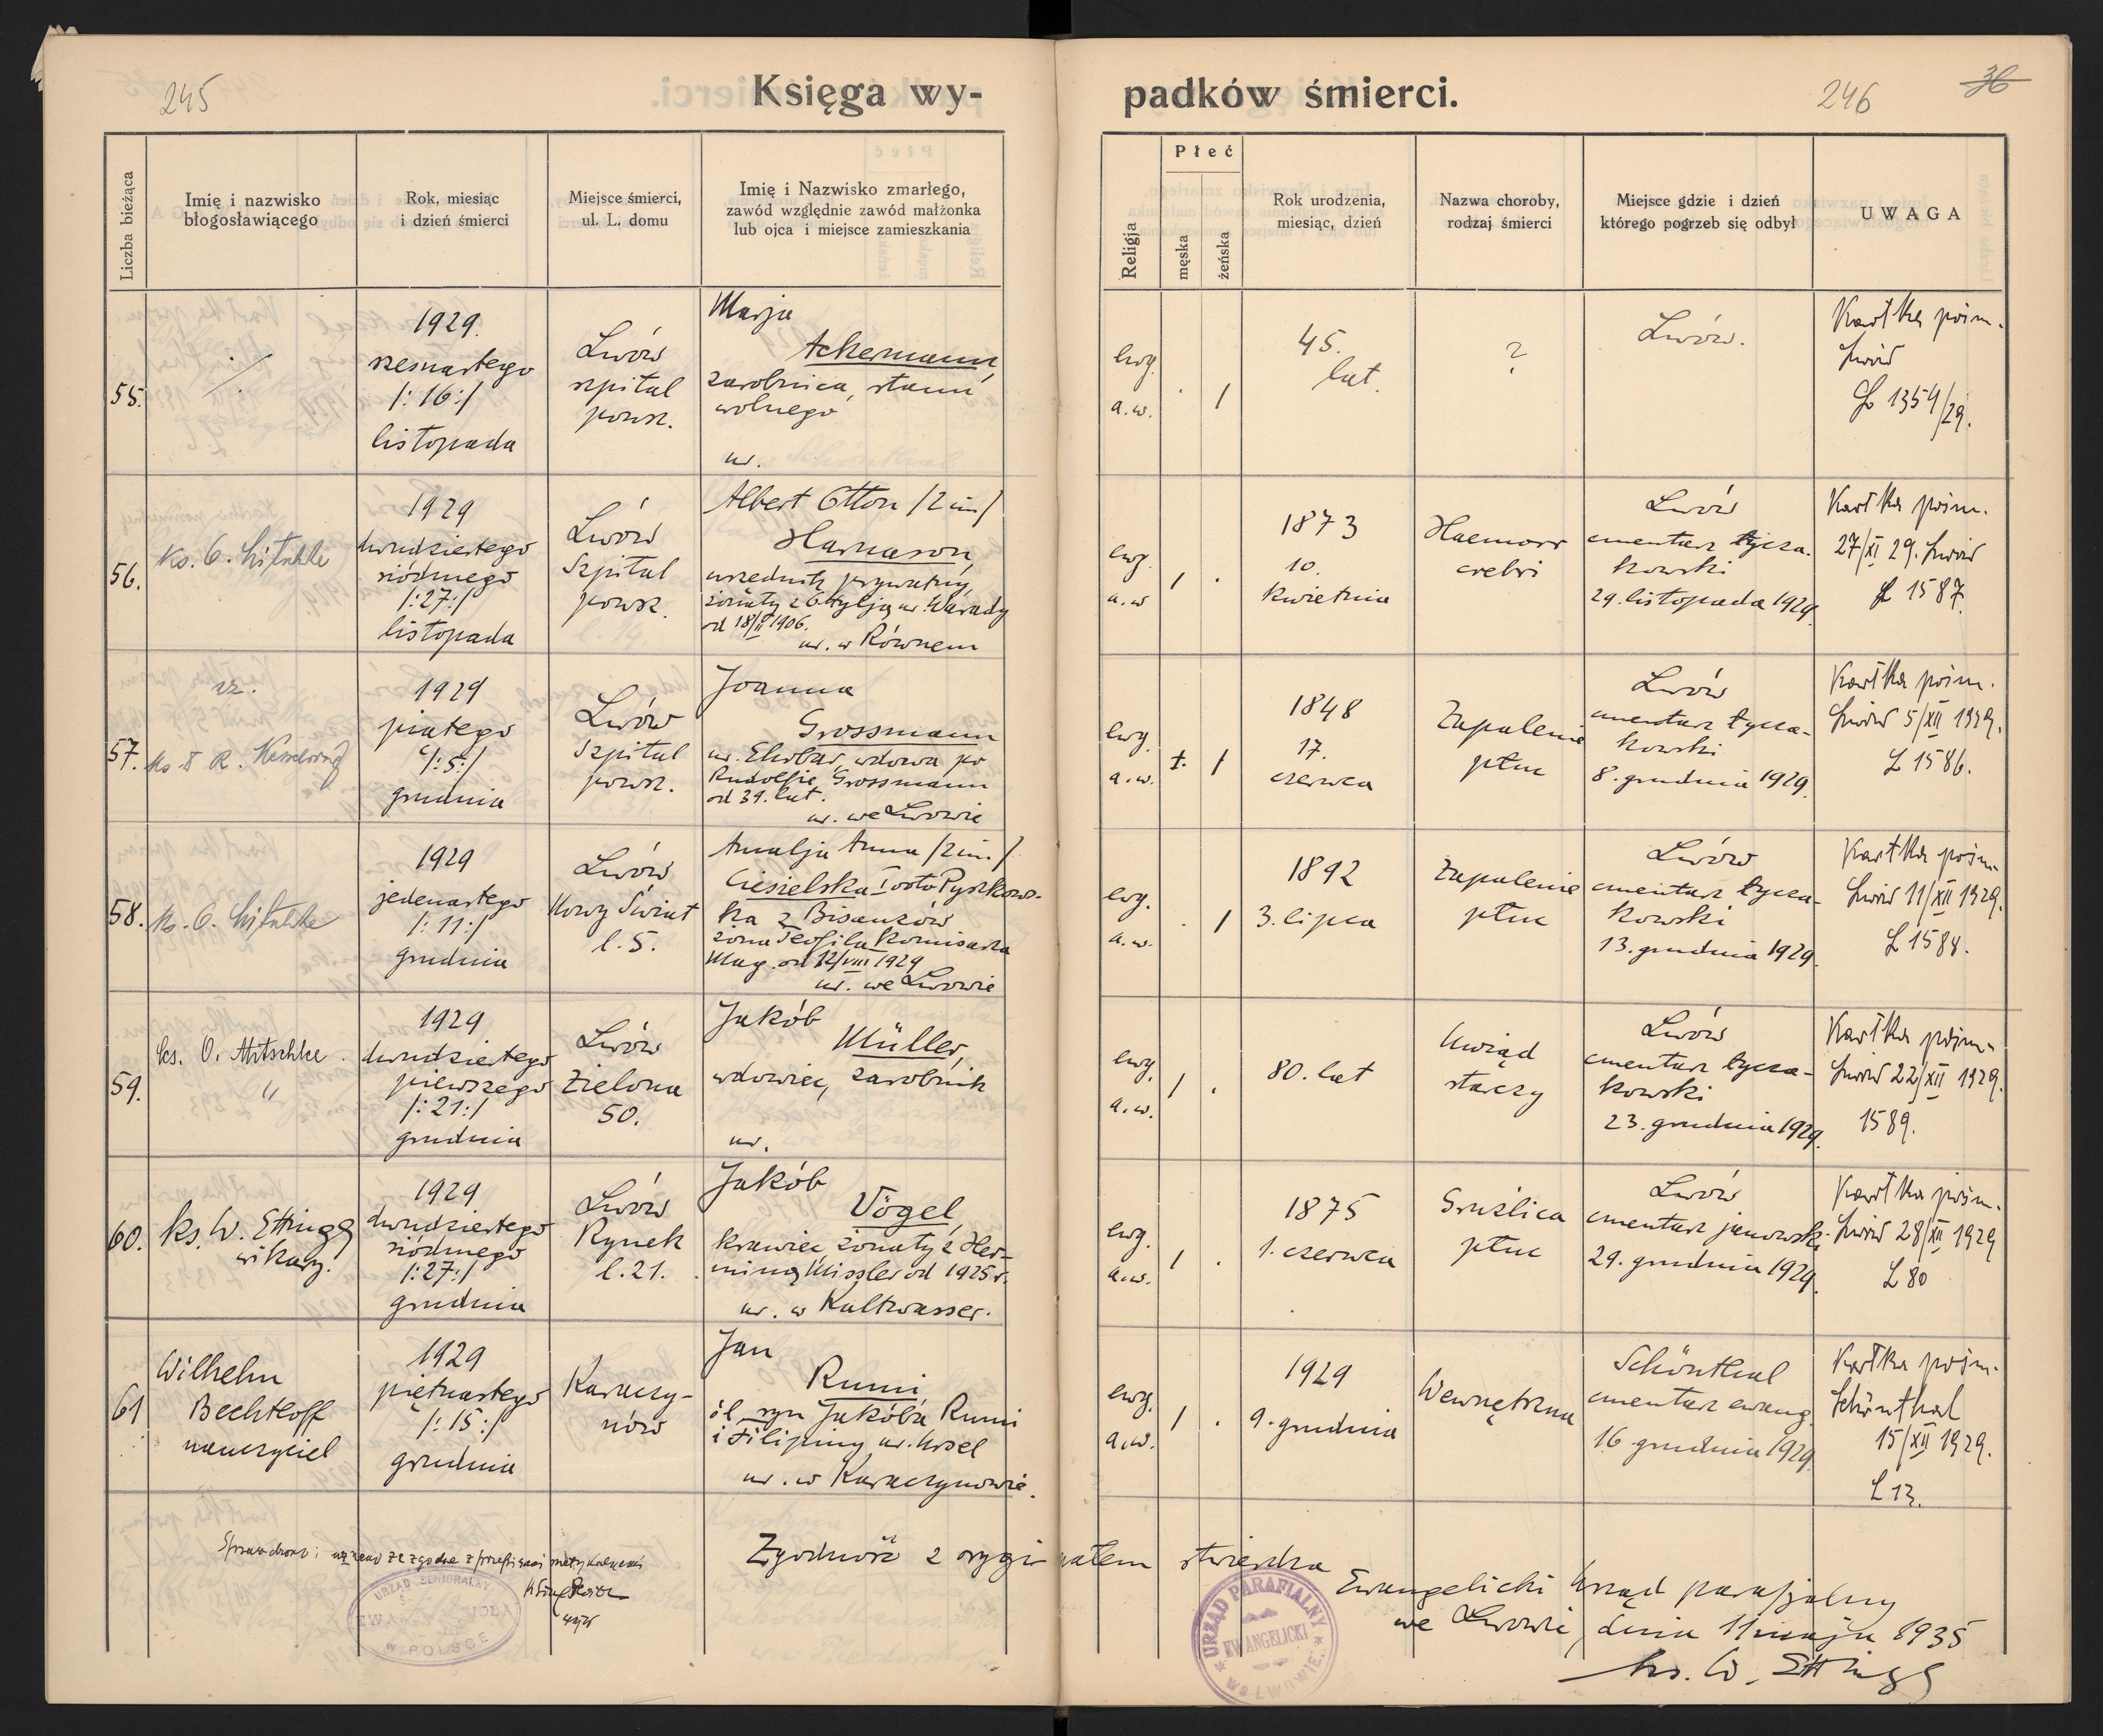 245
Księga wy-
padków śmierci.
246
36
Liczba bieżąca
Imię i nazwisko
błogosławiącego
Rok, miesiąc
i dzień śmierci
Miejsce śmierci,
ul. L. domu
Imię i Nazwisko zmarłego,
zawód względnie zawód małżonka
lub ojca i miejsce zamieszkania
Religja
Płeć
męska
żeńska
Rok urodzenia,
miesiąc, dzień
Nazwa choroby,
rodzaj śmierci
Miejsce gdzie i dzień
którego pogrzeb się odbył
UWAGA
55.
1929.
szesnastego
/: 16 :/
listopada
Lwów
szpital
powsz.
Marja
Ackermann,
zarobnica, stanu
wolnego
ur.
ewg.
a.w.
/
45.
lat.
?
Lwów.
Kartka pośm.
Lwów
L 1354/29.
56.
ks. O.
1929
dwudziestego
siódmego
/:27:/
listopada
Lwów
Szpital
powsz.
Albert Otton /2 im/
Harnason,
urzędnik prywatny,
żonaty z Otylją ur. Warady
od 18/II 1906.
ur. w Równem
ewg.
a.w
/
1873
10.
kwietnia
Haemorr
crebri
Lwów
cmentarz łycza-
kowski
29. listopada 1929.
Kartka pośm.
27/XI 29. Lwów
L 1587.
57.
vz.
1929
piątego
/:5:/
grudnia
Lwów
Szpital
powsz.
Joanna
Grossmann
wdowa po
Rudolfie Grossmann
od 39. lat.
ur. we Lwowie
ewg.
a.w.
/
1848
17.
czerwca
Zapalenie
płuc
Lwów
cmentarz łycza-
kowski
8. grudnia 1929.
Kartka pośm.
Lwów 5/XII 1929.
L 1586.
58.
ks. O.
1929
jedenastego
/: 11:/
grudnia
Lwów
Nowy Świat
l. 5.
Amalja Anna /2 im./
Ciesielska I voto Pyszkows-
ka z Bisanzów
żona Teofila Komisarza
Mag. od 12/VIII 1929
ur. we Lwowie
ewg.
a.w.
/
1892
3. lipca
Zapalenie
płuc
Lwów
cmentarz łycza-
kowski
13. grudnia 1929.
Kartka pośm.
Lwów 11/XII 1929.
L 1588.
59.
ks. O. Mitschke
"
1929
dwudziestego
pierwszego
/:21:/
grudnia
Lwów
Zielona
50.
Jakób
Müller,
wdowiec, zarobnik
ur.
ewg.
a.w.
/
80. lat
Uwiąd
starczy
Lwów
cmentarz łycza-
kowski
23. grudnia 1929.
Kartka pośm.
Lwów 22/XII 1929.
1589.
60.
ks. W. Ettinger
wikary.
1929
dwudziestego
siódmego
/:27:/
grudnia
Lwów
Rynek
l. 21.
Jakób
Vögel,
krawiec, żonaty z Her-
miną Missler od 1925 r.
ur. w Kaltwasser.
ewg.
a.w.
/
1875
1. czerwca
Gruźlica
płuc
Lwów
cmentarz janowski
29. grudnia 1929.
Kartka pośm.
Lwów 28/XII 1929
L 80
61
Wilhelm
Bechtloff
nauczyciel
1929
piętnastego
/: 15:/
grudnia
Karaczy-
nów
Jan
Rumi,
śl. syn Jakóba Rumi
i Filipiny ur. Ursel
ur. w Karaczynowie.
ewg.
a.w.
/
1929
9. grudnia
Wewnętrzna
Schönthal
cmentarz ewang.
16 grudnia 1929.
Kartka pośm.
Schönthal
15/XII 1929.
L 13.
Zgodność z oryginałem stwierdza
Ewangelicki Urząd parafjalny
we Lwowie, dnia 11 maja 1935
ks. W. Ettinger
URZĄD SENIORALNY
W POLSCE
URZĄD PARAFIALNY
EWANGELICKI
WE LWOWIE